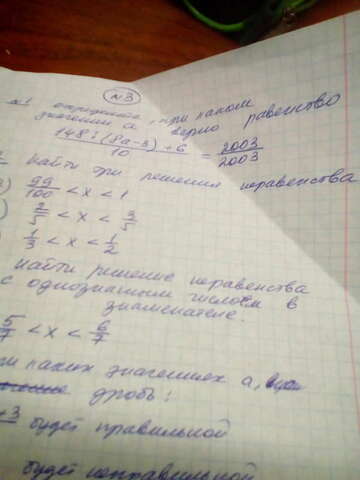 №3
№1 определите, при каком
значении а верно равенство
(148:(8a-3)+6)/10 = 2003/2003
Найти три решения неравенства
99/100 < x < 1
2/5 < x < 3/5
1/3 < x < 1/2
найти решение неравенства
с однозначным числом в
знаменателе.
5/7 < x < 6/7
при каких значениях а,
дробь:
+3 будет правильной
будет неправильной